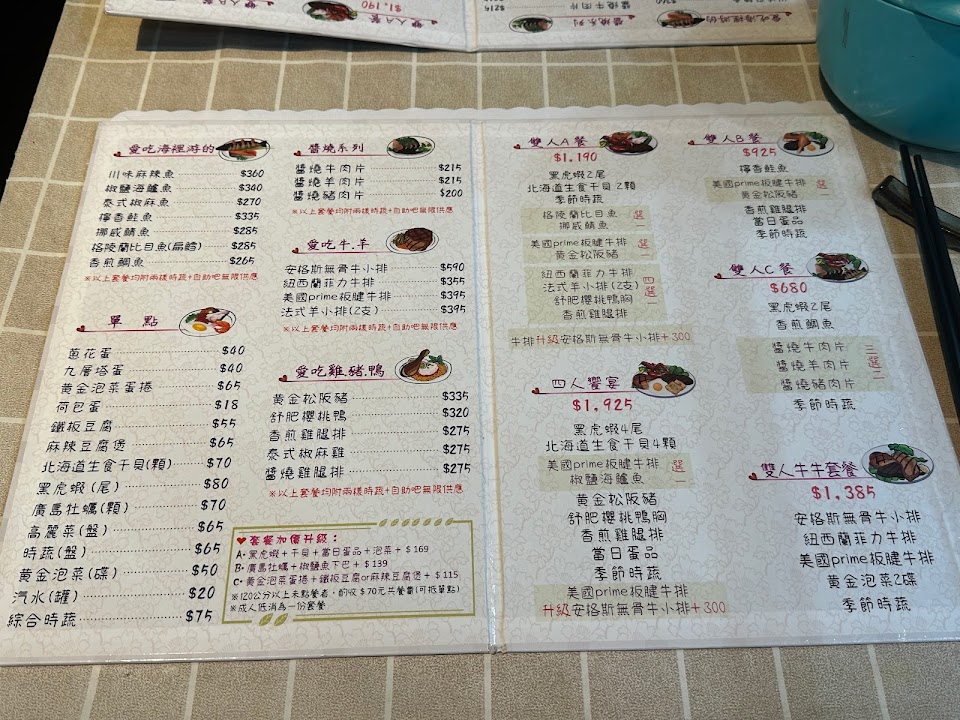 愛吃海裡游的
川味麻辣魚 $360
椒鹽海鱸魚 $340
泰式椒麻魚 $270
檸香鮭魚 $335
挪威鯖魚 $285
格陵蘭比目魚(扁鱈) $285
香煎鯛魚 $265
※以上套餐均附兩樣時蔬+自助吧無限供應
單點
蔥花蛋 $40
九層塔蛋 $40
黃金泡菜蛋捲 $65
荷包蛋 $18
鐵板豆腐 $55
麻辣豆腐煲 $65
北海道生食干貝(顆) $70
黑虎蝦(尾) $80
廣島牡蠣(顆) $70
高麗菜(盤) $65
時蔬(盤) $65
黃金泡菜(碟) $50
汽水(罐) $20
綜合時蔬 $75
醬燒系列
醬燒牛肉片 $215
醬燒羊肉片 $215
醬燒豬肉片 $200
※以上套餐均附兩樣時蔬+自助吧無限供應
愛吃牛.羊
安格斯無骨牛小排 $590
紐西蘭菲力牛排 $355
美國prime板腱牛排 $395
法式羊小排(2支) $395
※以上套餐均附兩樣時蔬+自助吧無限供應
愛吃雞.豬.鴨
黃金松阪豬 $335
舒肥櫻桃鴨 $320
香煎雞腿排 $275
泰式椒麻雞 $275
醬燒雞腿排 $275
※以上套餐均附兩樣時蔬+自助吧無限供應
♥套餐加價升級：
A•黑虎蝦+干貝+當日蛋品+泡菜+$169
B•廣島牡蠣+椒鹽魚下巴+$139
C•黃金泡菜蛋捲+鐵板豆腐or麻辣豆腐煲+$115
※120公分以上未點餐者，酌收$70元共餐費(可抵單點)
※成人低消為一份套餐
雙人A餐
$1,190
黑虎蝦2尾
北海道生食干貝2顆
季節時蔬
格陵蘭比目魚
挪威鯖魚
選一
美國prime板腱牛排
黃金松阪豬
選一
紐西蘭菲力牛排
法式羊小排(2支)
舒肥櫻桃鴨胸
香煎雞腿排
四選一
牛排升級安格斯無骨牛小排+300
四人饗宴
$1,925
黑虎蝦4尾
北海道生食干貝4顆
美國prime板腱牛排
椒鹽海鱸魚
選一
黃金松阪豬
舒肥櫻桃鴨胸
香煎雞腿排
當日蛋品
季節時蔬
美國prime板腱牛排
升級安格斯無骨牛小排+300
雙人B餐
$925
檸香鮭魚
美國prime板腱牛排
黃金松阪豬
選一
香煎雞腿排
當日蛋品
季節時蔬
雙人C餐
$680
黑虎蝦2尾
香煎鯛魚
醬燒牛肉片
醬燒羊肉片
醬燒豬肉片
三選一
季節時蔬
雙人牛牛套餐
$1,385
安格斯無骨牛小排
紐西蘭菲力牛排
美國prime板腱牛排
黃金泡菜2碟
季節時蔬